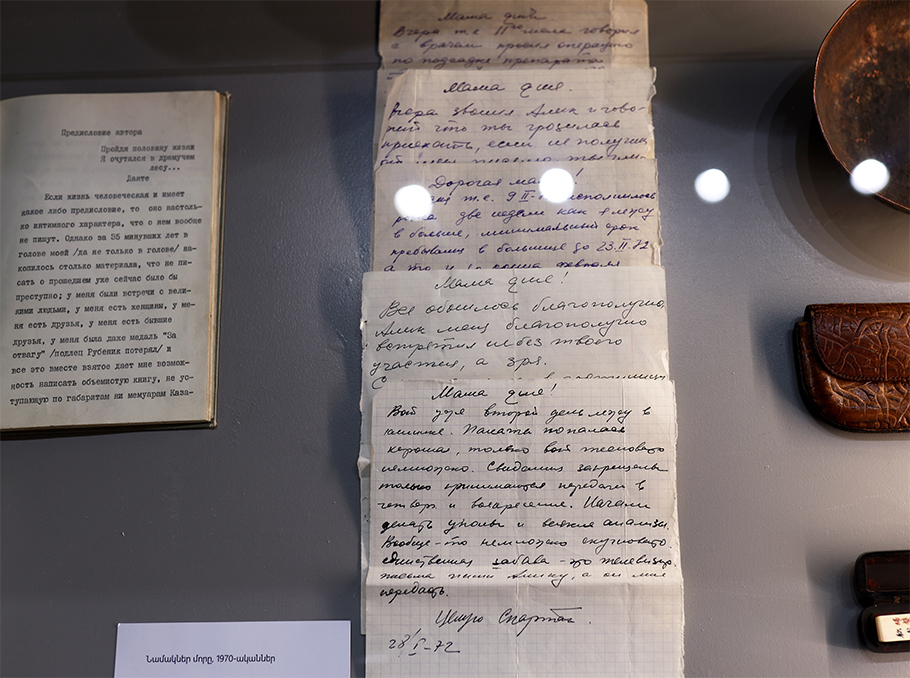 Предисловие автора
Пройдя половину жизни
Я очутился в дремучем
лесу...
Данте
Если жизнь человеческая и имеет
какое либо предисловие, то оно настоль-
ко интимного характера, что о нем вообще
не пишут. Однако за 55 минувших лет в
голове моей /да не только в голове/ на-
копилось столько материала, что не пи-
сать о прошедшем уже сейчас было бы
преступно; у меня были встречи с вели-
кими людьми, у меня есть женщины, у ме-
ня есть друзья, у меня есть бывшие
друзья, у меня была даже медаль "За
отвагу" /подлец Рубения потерял/ и
все это вместе взятое дает мне возмож-
ность написать объемистую книгу, не ус-
тупающую по габаритам ни мемуарам Каза-
Мама джан
Вчера т.е. II говорил
с врачам просил операцию
по подсадке препарата
Мама джан.
Вчера звонил Алик и гово-
рит что ты грозилась
приехать, если не получишь
Дорогая мама!
т.е. 9 II исполнилось
две недели как я лежу
в больнице, минимальный срок
пребывания в больнице до 23.II.72
а то и до конца февраля
Мама джан!
Все обошлось благополучно,
Алик меня благополучно
встретил и без твоего
участия, а зря.
Мама джан!
Вот уже второй день лежу в
клинике. Палата попалась
хорошая, только вот тесновато
немножко. Свидания запрещены
только принимаются передачи в
четверг и воскресение. Начали
делать уколы и всякие анализы.
Вообще-то немножко скучновато.
единственная забава - это телевизор.
письма пиши Алику, а он мне
передаст.
Целую Спартак.
28/I-72
Նամակներ մորը, 1970-ականներ